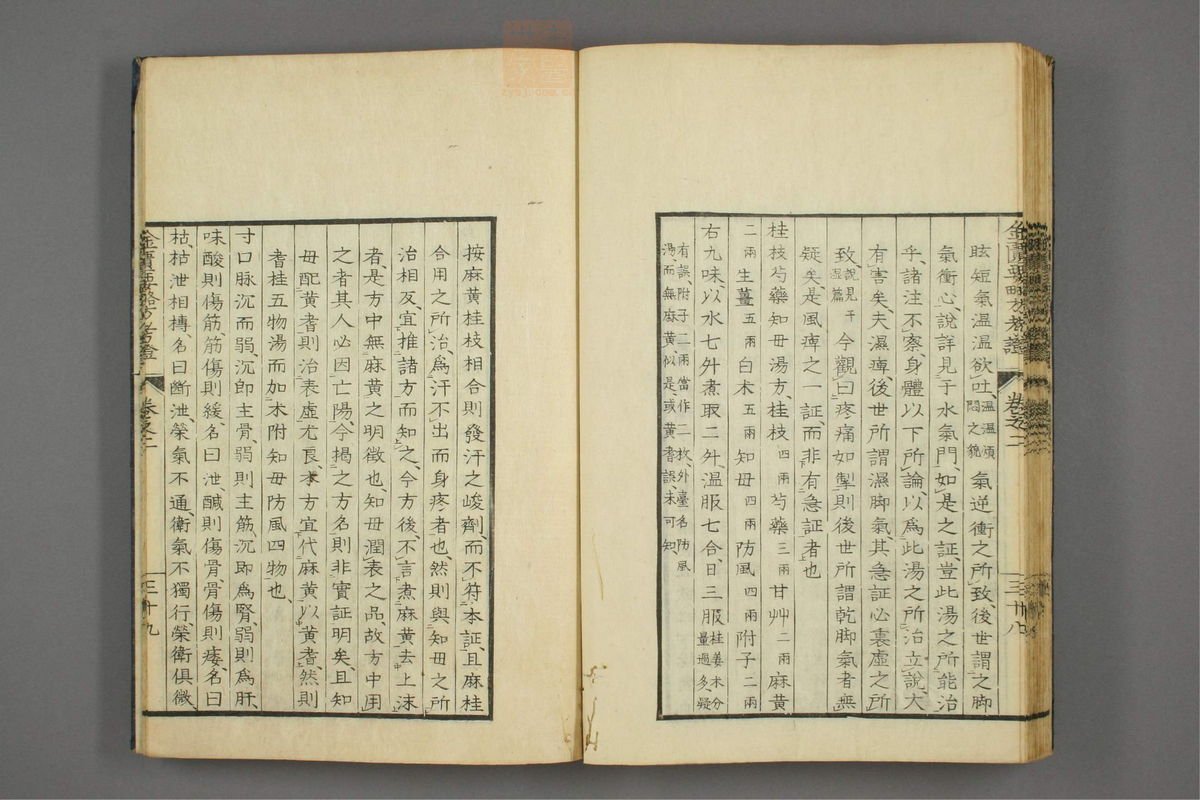 金匱要略方考證 卷之二 三十八
眩短氣温温欲吐、温温煩悶之貌氣逆衝之所致、後世謂之脚
氣衝心、說詳見于水氣門、如是之証豈此湯之所能治
乎、諸注不察、身體以下、所論以爲此湯之所治立說、大
有害矣、夫濕痺、後世所謂濕脚氣、其急証必裏虛之所
致、說見于濕篇今觀曰疼痛如掣則後世所謂乾脚氣者、無
疑矣是風痺之一証、而非有急証者也
桂枝芍藥知毋湯方、桂枝四兩芍藥三兩甘艸二兩麻黄
二兩生薑五兩白朮五兩知毋四兩防風四兩附子二兩
右九味、以水七升煮取二升、温服七合、日三服桂姜朮分量過多、疑
有誤、附子二兩當作二枚、外臺名防風湯、而無麻黄似是、或黄耆誤、未可知、
按麻黄桂枝相合則發汗之峻劑、而不符本証、且麻桂
合用之所治、爲汗不出而身疼者也、然則與知毋之所
治相反宜推諸方而知之、今方後、不言煮麻黄去上沫
者、是方中無麻黄之明徵也、知毋潤表之品、故方中用
之者其人必因亡陽、今揭之方名則非實証明矣、且知
毋配黄耆則治表虛尤良、本方宜代麻黄以黄耆然則
耆桂五物湯而加朮附知毋防風四物也、
寸口脉沉而弱、沉卽主骨、弱則主筋、沉卽爲腎、弱則爲肝、
味酸則傷筋、筋傷則緩、名曰泄、鹹則傷骨、骨傷則痿、名曰
枯、枯泄相搏、名曰斷泄、榮氣不通、衛氣不獨行、榮衛俱微
金匱要略方考證 卷之二 三十九